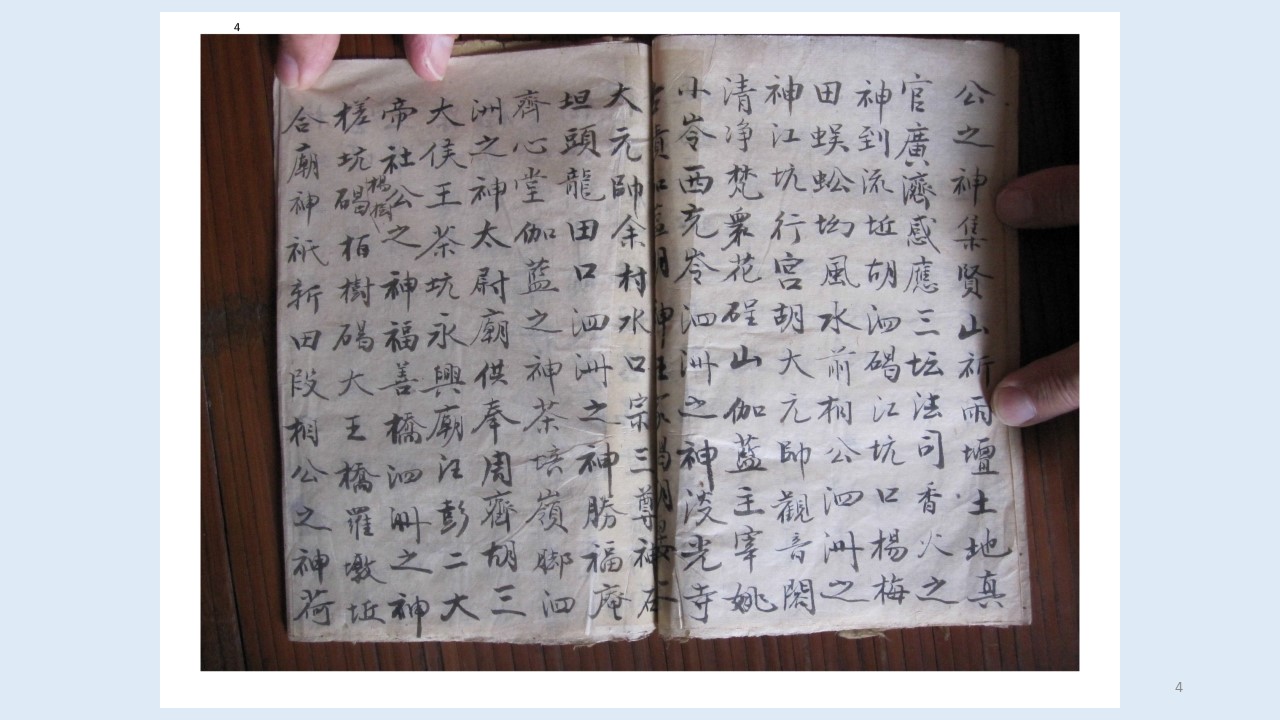 4
公之神集賢山祈雨壇土地真
官廣濟感應三坛法司香火之
神到流坵胡泗碣江坑口楊梅
田蜈蚣坳風水前相公泗洲之
神江坑行宮胡大元帥觀音閣
清净梵衆花碇山伽藍主宰姚
小岺西充岺泗洲之神淩光寺
神王
大元帥余村水口宗三尊神石
坦頭龍田口泗洲之神勝福庵
齊心堂伽藍之神茶培嶺脚泗
洲之神太尉廟供奉周齊胡三
大侯王茶坑永興廟汪彭二大
帝社公之神福善橋泗洲之神
楊樹
槎坑碣柏樹碣大王橋羅墩坵
合廟神祇新田段相公之神荷
4